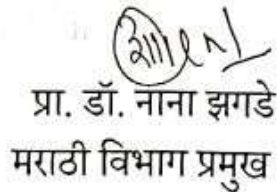 प्रा. डॉ. नाना झगडे
मराठी विभाग प्रमुख